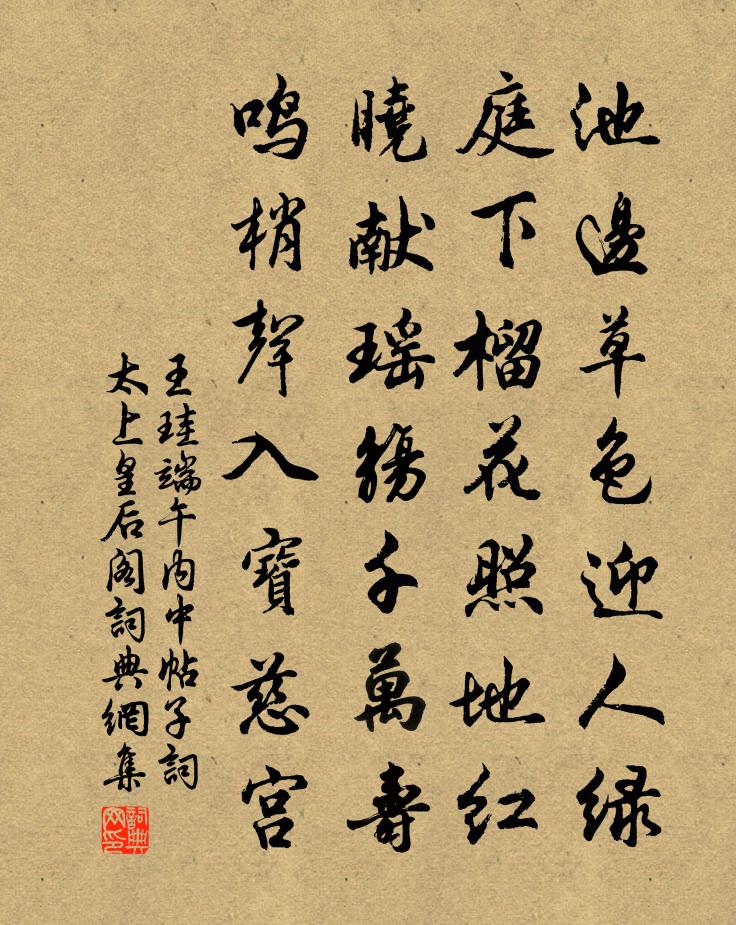 池邊草色迎人緑
庭下榴花照地紅
曉献瑶觴千萬壽
鳴梢聲入寶慈宫
王珪端午内中帖子詞
太上皇后阁詞典網集
詞典网印